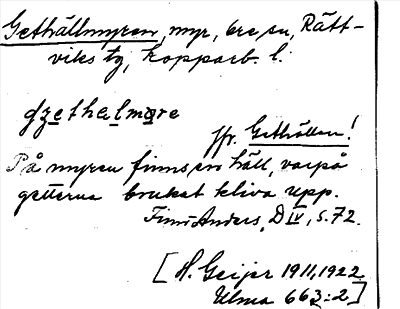 Gethällmyren, myr, bre su, Rätt-
viks tg, Kopparb. l.
gzethalmøre
Jfr. Gethällen!
På myren finns en häll, varpå
getterna brukat kliva upp.
Finn Anders, D IV, s. 72.
[H. Geijer 1911, 1922
Ulma 663:2]